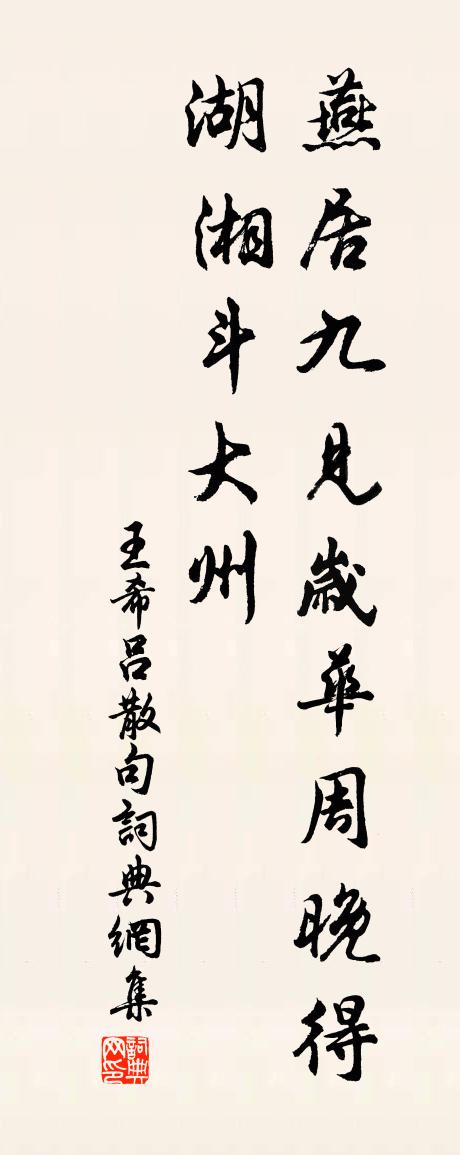 燕居九見歲華周晚得
湖湘斗大州
王希呂散句詞典網集
詞典网印